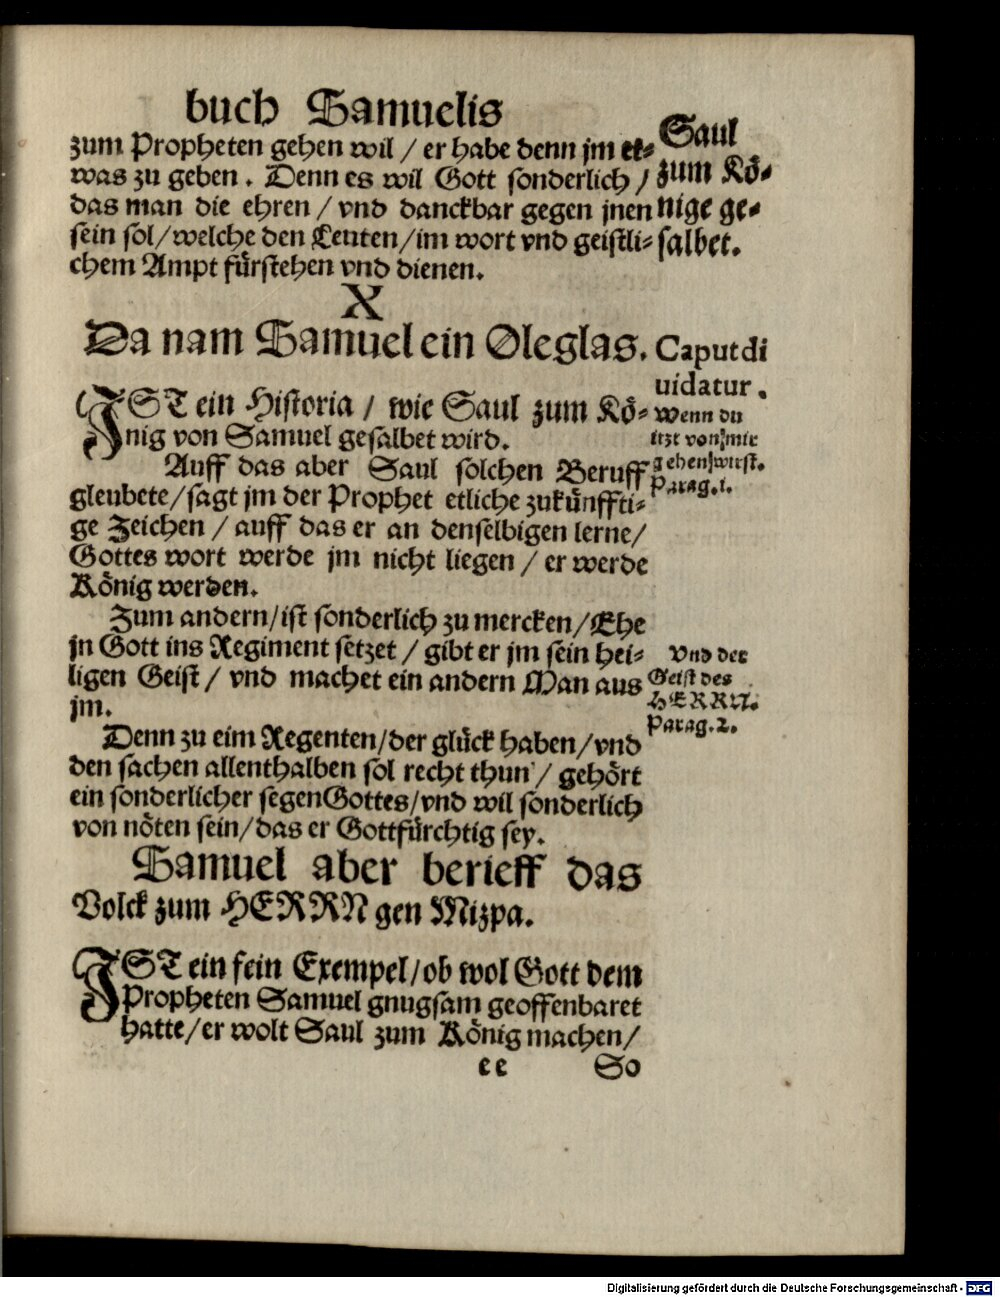 buch Samuelis
zum Propheten gehen wil / er habe denn jm et⸗
was zu geben. Denn es wil Gott sonderlich /
das man die ehren / vnd danckbar gegen jnen
sein sol/welche den Leuten/im wort vnd geistli⸗
chem Ampt fürstehen vnd dienen.
Saul
zum Kö⸗
nige ge⸗
salbet.
X
Da nam Samuel ein Oleglas.
Caput di
uidatur.
Wenn du
itzt von mir
gehen wirst.
Parag.1.
IST ein Historia / wie Saul zum Kö⸗
nig von Samuel gesalbet wird.
Auff das aber Saul solchen Beruff
gleubete/sagt jm der Prophet etliche zukünffti⸗
ge Zeichen / auff das er an denselbigen lerne/
Gottes wort werde jm nicht liegen / er werde
König werden.
Zum andern/ist sonderlich zu mercken/Ehe
jn Gott ins Regiment setzet / gibt er jm sein hei⸗
ligen Geist / vnd machet ein andern Man aus
jm.
Vnd der
Geist des
HERRN.
Parag.2.
Denn zu eim Regenten/der glück haben/vnd
den sachen allenthalben sol recht thun / gehört
ein sonderlicher segen Gottes/vnd wil sonderlich
von nöten sein/das er Gottfürchtig sey.
Samuel aber berieff das
Volck zum HERRN gen Mizpa.
IST ein fein Exempel/ob wol Gott dem
Propheten Samuel gnugsam geoffenbaret
hatte/er wolt Saul zum König machen/
ee So
Digitalisierung gefördert durch die Deutsche Forschungsgemeinschaft - DFG